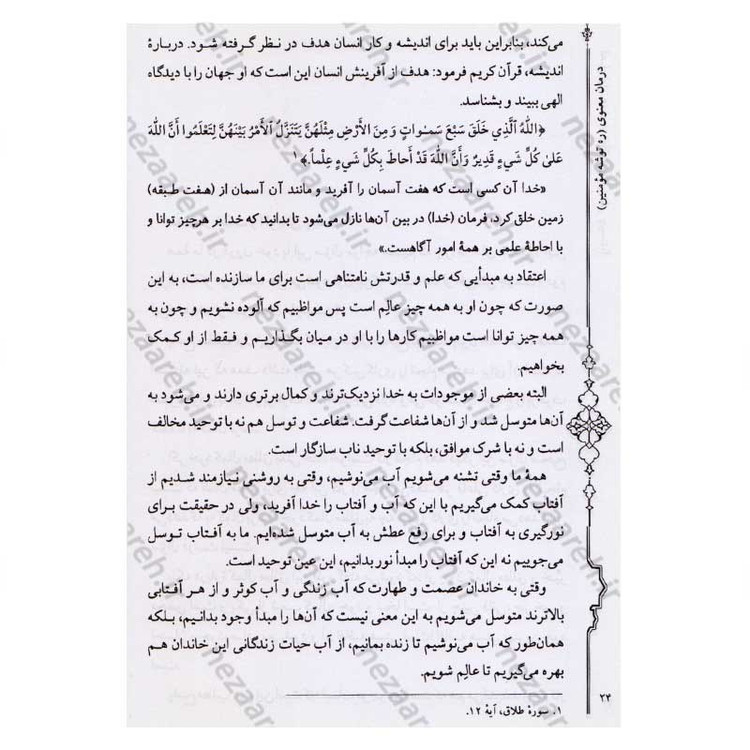 می‌کند، بنابراین باید برای اندیشه و کار انسان هدف در نظر گرفته شود. دربارهٔ
اندیشه، قرآن کریم فرمود: هدف از آفرینش انسان این است که او جهان را با دیدگاه
الهی ببیند و بشناسد.
﴿اللهُ الَّذِي خَلَقَ سَبْعَ سَمٰواتٍ وَمِنَ الْأَرْضِ مِثْلَهُنَّ يَتَنَزَّلُ الْأَمْرُ بَيْنَهُنَّ لِتَعْلَمُوا أَنَّ اللهَ
عَلىٰ كُلِّ شَيءٍ قَدِيرٌ وَأَنَّ اللهَ قَدْ أَحاطَ بِكُلِّ شَيءٍ عِلْماً.﴾۱
«خدا آن کسی است که هفت آسمان را آفرید و مانند آن آسمان از (هفت طبقه)
زمین خلق کرد، فرمان (خدا) در بین آن‌ها نازل می‌شود تا بدانید که خدا بر هرچیز توانا و
با احاطهٔ علمی بر همهٔ امور آگاهست.»
اعتقاد به مبدأیی که علم و قدرتش نامتناهی است برای ما سازنده است، به این
صورت که چون او به همه چیز عالِم است پس مواظبیم که آلوده نشویم و چون به
همه چیز توانا است مواظبیم کارها را با او در میان بگذاریم و فقط از او کمک
بخواهیم.
البته بعضی از موجودات به خدا نزدیک‌ترند و کمال برتری دارند و می‌شود به
آن‌ها متوسل شد و از آن‌ها شفاعت گرفت. شفاعت و توسل هم نه با توحید مخالف
است و نه با شرک موافق، بلکه با توحید ناب سازگار است.
همهٔ ما وقتی تشنه می‌شویم آب می‌نوشیم، وقتی به روشنی نیازمند شدیم از
آفتاب کمک می‌گیریم با این که آب و آفتاب را خدا آفرید، ولی در حقیقت برای
نورگیری به آفتاب و برای رفع عطش به آب متوسل شده‌ایم. ما به آفتاب توسل
می‌جوییم نه این که آفتاب را مبدأ نور بدانیم، این عین توحید است.
وقتی به خاندان عصمت و طهارت که آب زندگی و آب کوثر و از هر آفتابی
بالاترند متوسل می‌شویم به این معنی نیست که آن‌ها را مبدأ وجود بدانیم، بلکه
همان‌طور که آب می‌نوشیم تا زنده بمانیم، از آب حیات زندگانی این خاندان هم
بهره می‌گیریم تا عالِم شویم.
۱. سورهٔ طلاق، آیهٔ ۱۲.
درمان معنوی (ره توشه مؤمنین)
۲۴
nezaareh.ir